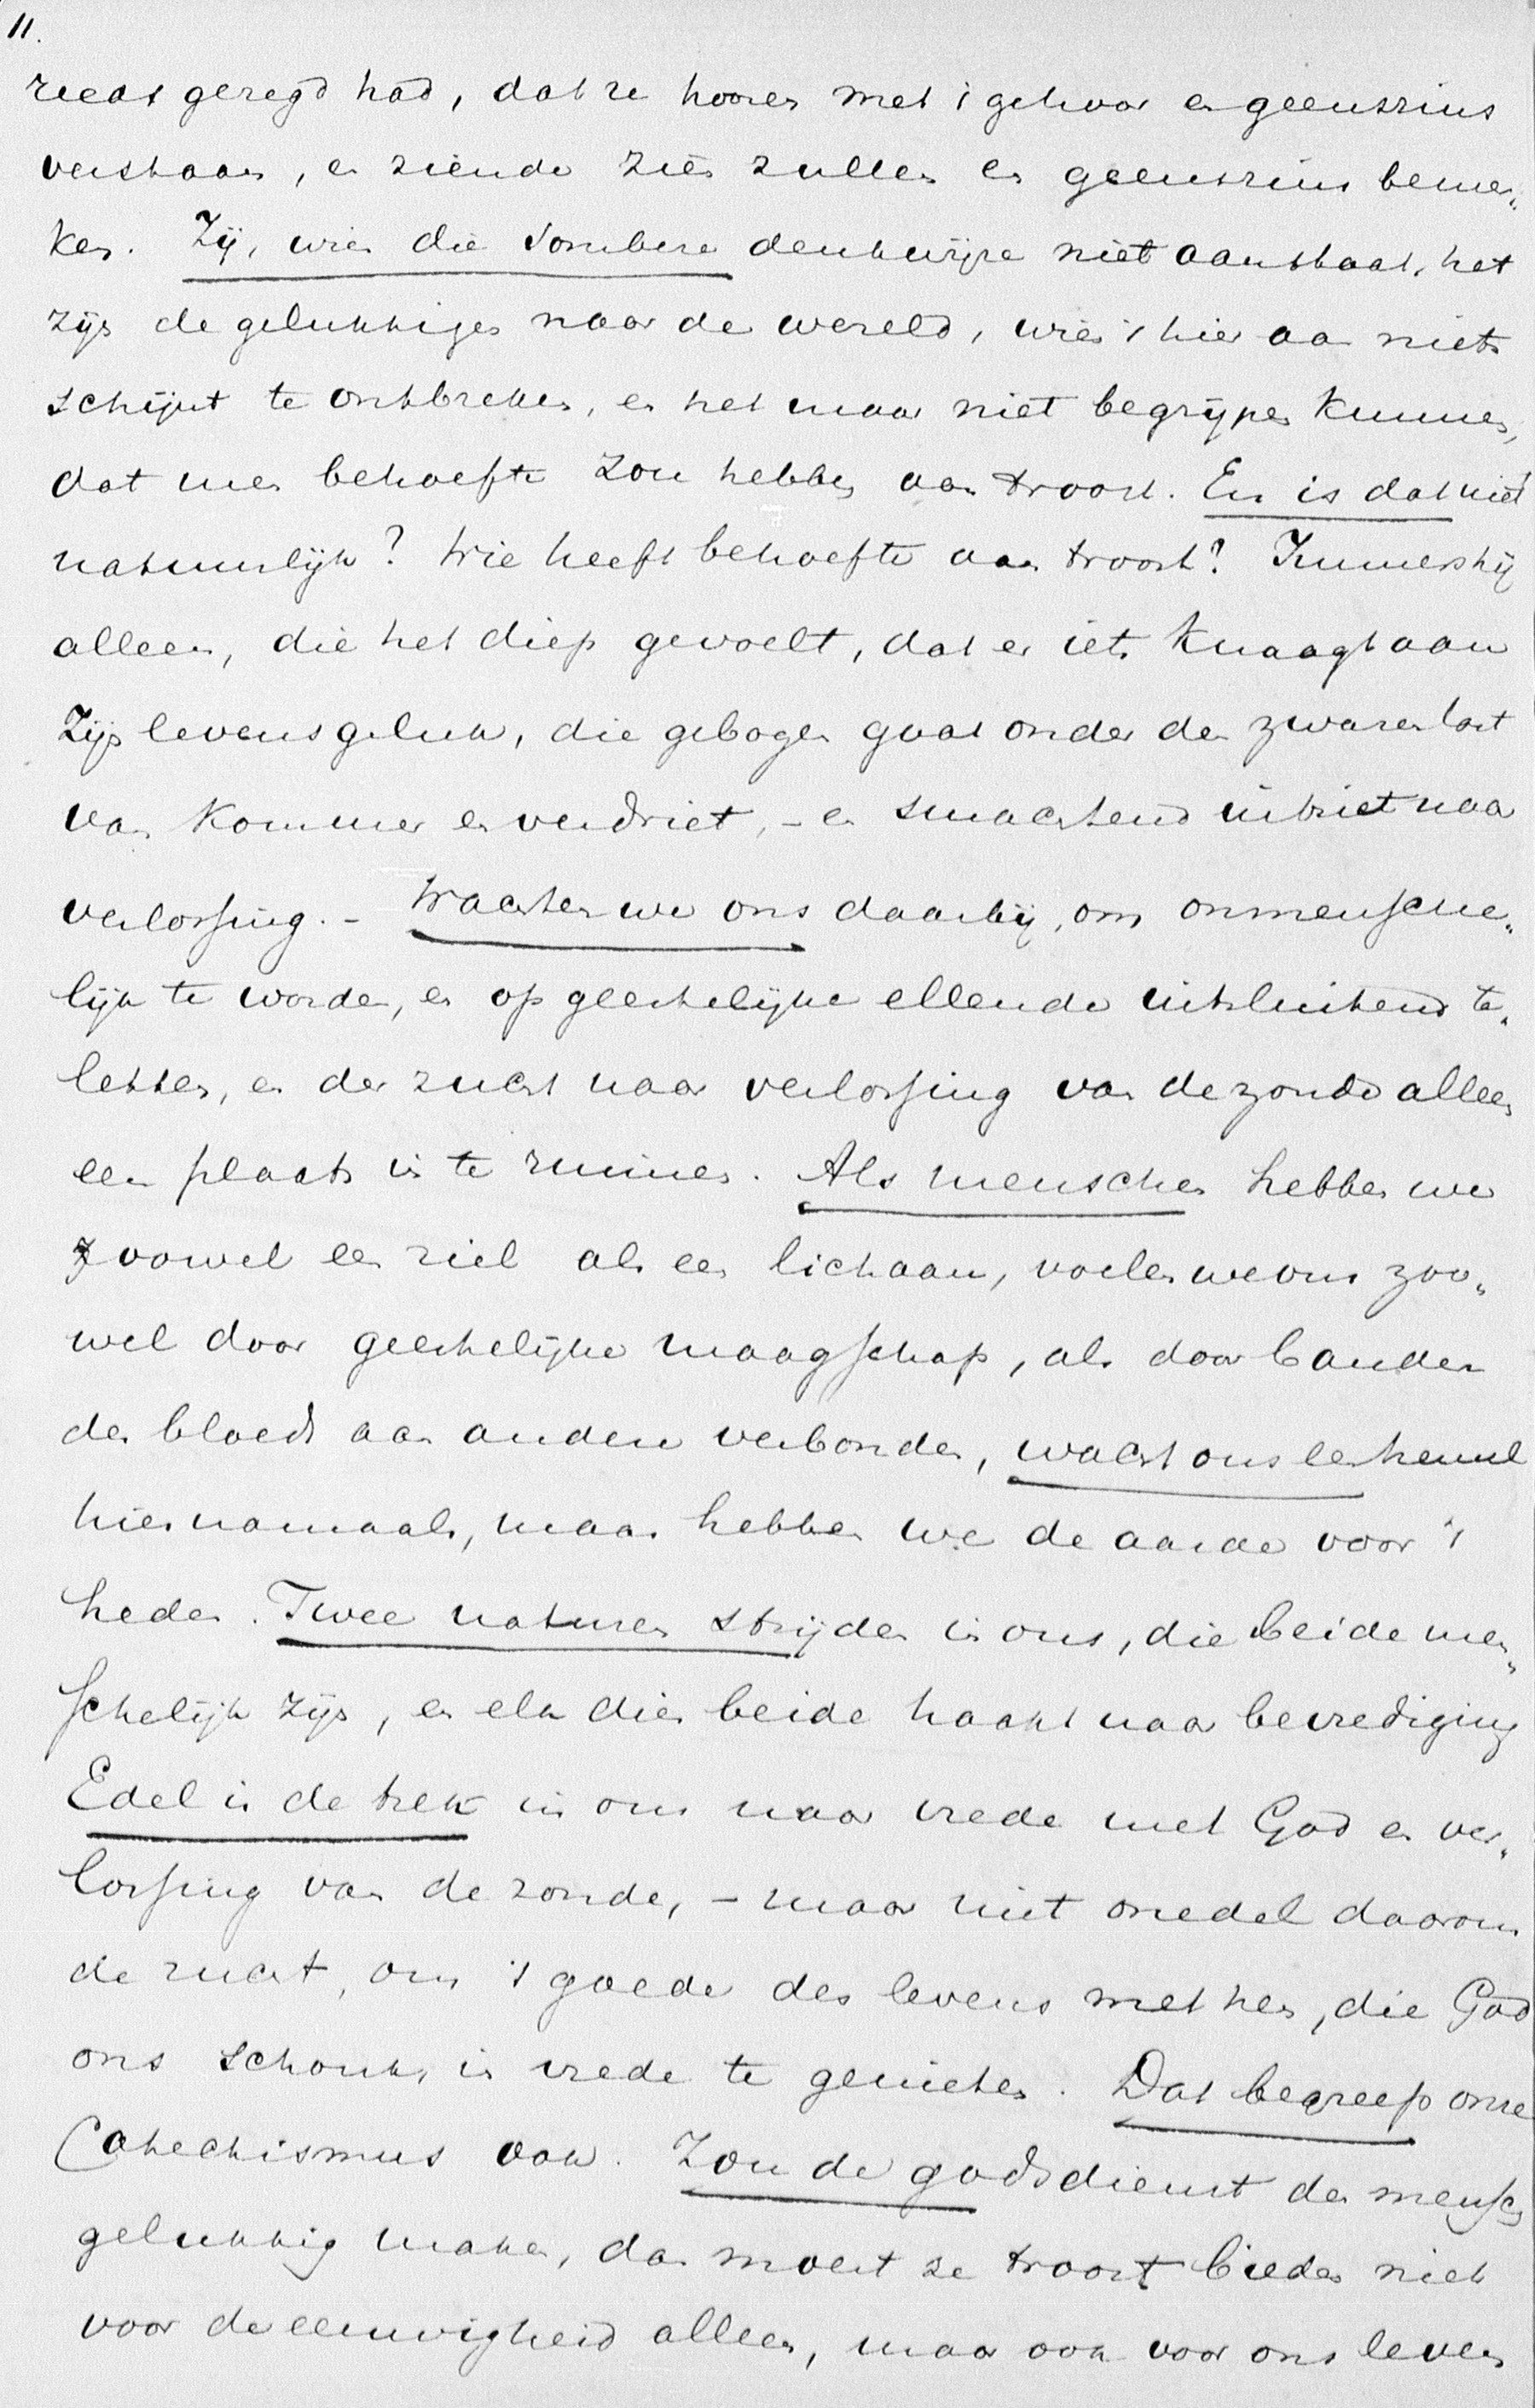 11.
reeds gezegd had, dat ze hooren met 't gehoor en geenszins
verstaan, en ziende zien zullen en geenszins bemer„
ken. Zij, wien die sombere denkwijze niet aanstaat, het
zijn de gelukkigen naar de wereld, wien 't hier aan niets
schijnt te ontbreken, en het maar niet begrijpen kunnen,
dat men behoefte zou hebben aan troost. En is dat niet
natuurlijk? Wie heeft behoefte aan troost? Immers hij
alleen, die het diep gevoelt, dat er iets knaagt aan
Zijn levensgeluk, die gebogen gaat onder den zwaren last
van kommer en verdriet, – en smachtend uitziet naar
verlossing. – Wachten we ons daarbij, om onmensche„
lijk te worden, en op geestelijke ellende uitsluitend te„
letten, en der zucht naar verlossing van de zonde alleen
een plaats in te ruimen. Als menschen hebben we
zoowel een ziel als een lichaam, voelen we ons zoo„
wel door geestelijke maagschap, als door banden
des bloeds aan anderen verbonden, wacht ons een hemel
hiernamaals, maar hebben we de aarde voor 't
heden. Twee naturen strijden in ons, die beide men„
schelijk zijn, en elk dier beide haakt naar bevrediging
Edel is de trek in ons naar vrede met God en ver„
lossing van de zonde, – maar niet onedel daarom
de zucht, om 't goede des levens met hen, die God
ons schonk, in vrede te genieten. Dat begreep onze
Catechismus ook. Zou de godsdienst den mensch
gelukkig maken, dan moest ze troost bieden niet
voor de eeuwigheid alleen, maar ook voor ons leven